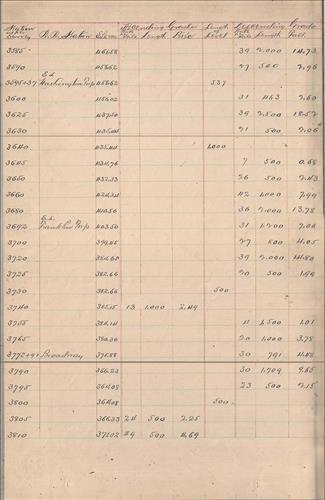 Station of the Survey R.R. Station Elevn Ascending Grade Rate Length Rise Length of Level Descending Grade Rate Length Fall
3585 461.58 39 2.000 14.73
3590 458.62 27 500 2.96
3595+37 Ed Washington Twp 458.62 537
3600 456.02 31 463 2.60
3625 437.50 39 2.500 18.52
3630 435.44 21 500 2.06
3640 435.44 1.000
3645 434.76 7 500 0.68
3650 432.33 26 500 2.43
3660 424.34 42 1.000 7.99
3680 410.56 36 2.000 13.78
3692 Ed. Franklin Twp 403.50 31 1.200 7.06
3700 399.45 27 800 4.05
3720 384.60 39 2.000 14.80
3725 382.66 20 500 1.94
3730 382.66 500
3740 385.15 13 1.000 2.49
3755 384.14 4 1.500 1.01
3765 380.36 20 1.000 3.78
3772+91 Broadway 375.88 30 791 4.48
3790 366.23 30 1.709 9.65
3795 364.08 23 500 2.15
3800 364.08 500
3805 366.33 24 500 2.25
3810 371.02 49 500 4.69